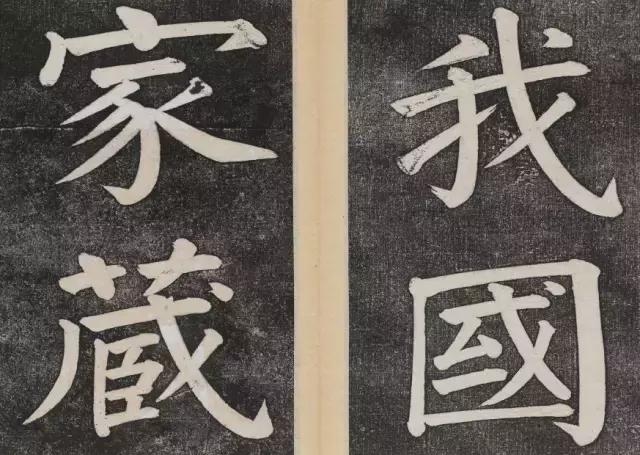 我國
家藏